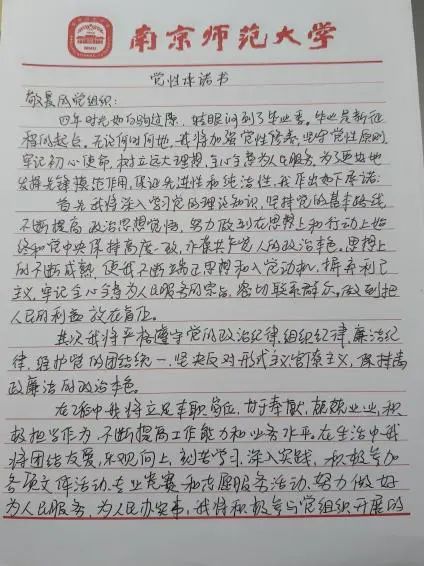 南京师范大学
党性承诺书
敬爱的党组织：
四年时光如白驹过隙，转眼间到了毕业季，毕业是新征
程的起点，无论何时何地，我将加强党性修养，坚守党性原则，
牢记初心使命，树立远大理想，全心全意为人民服务，为了更好地
发挥先锋模范作用，保证先进性和纯洁性，我作出如下承诺：
首先我将深入学习党的理论知识，坚持党的基本路线
不断提高政治思想觉悟，努力做到在思想上和行动上始
终和党中央保持高度一致，永葆共产党人的政治本色。思想上
的不断成熟，使我不断端正思想和入党动机，摒弃利己
主义，牢记全心全意为人民服务的宗旨，密切联系群众，做到把
人民的利益放在首位。
其次我将严格遵守党的政治纪律，组织纪律，廉洁纪
律，维护党的团结统一，坚决反对形式主义官僚主义，保持清
政廉洁的政治本色。
在工作中我将立足本职岗位，甘于奉献，兢兢业业，积
极担当作为，不断提高工作能力和业务水平。在生活中我
将团结友爱，乐观向上，刻苦学习，深入实践，积极参加
各项文体活动，专业竞赛和志愿服务活动，努力做好
为人民服务，为人民办实事，我将积极参与党组织开展的